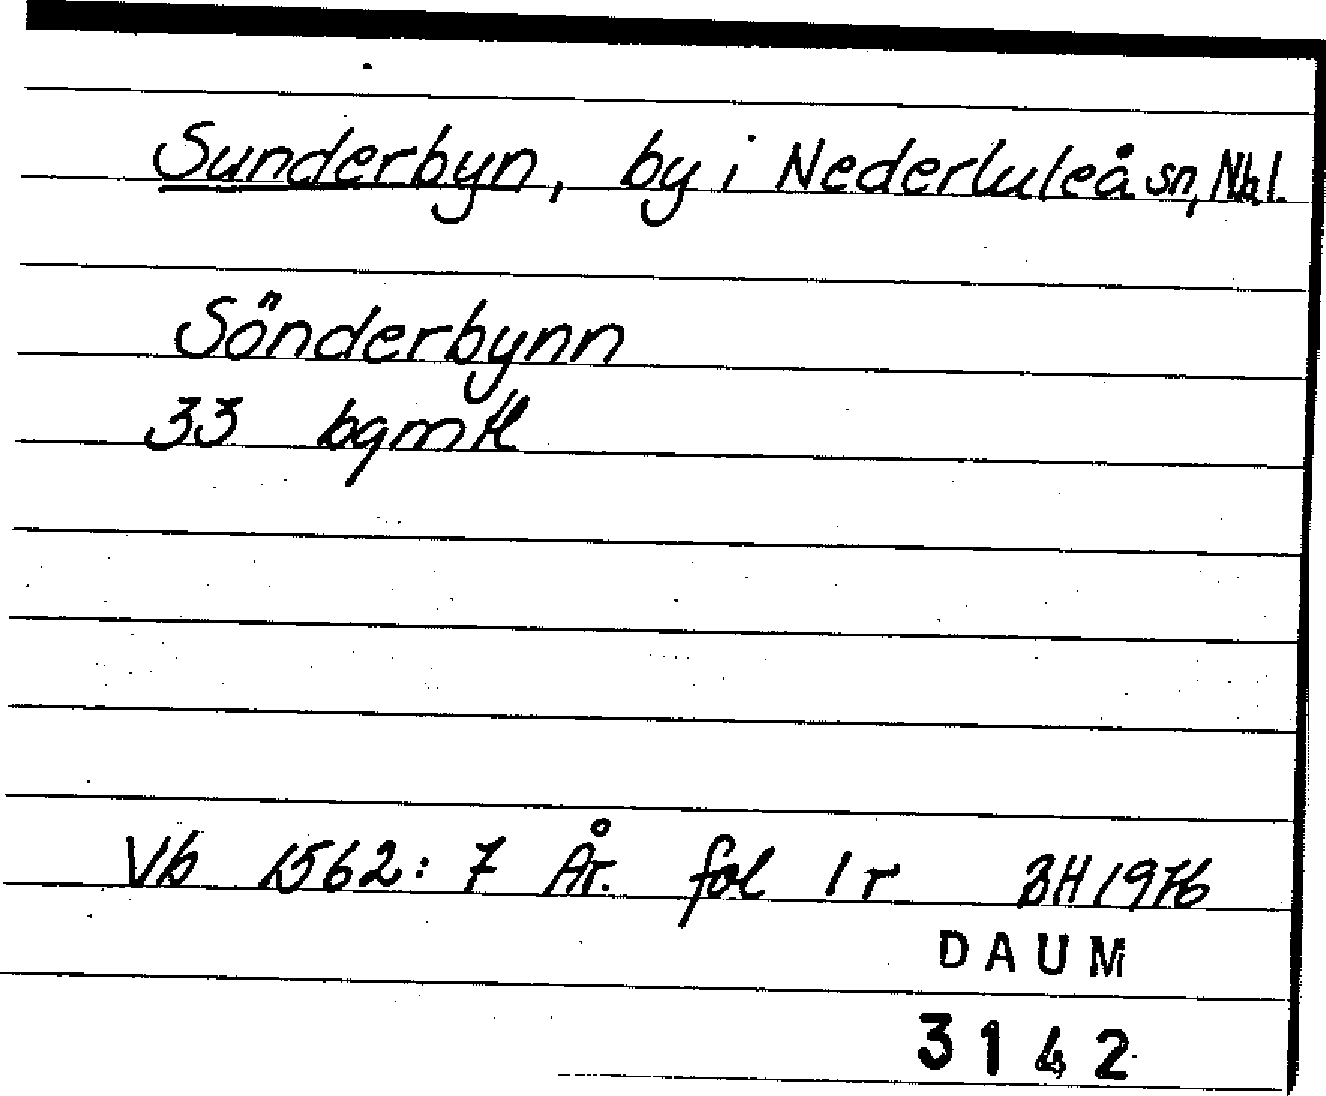 Sunderbyn, by i Nederluleå sn, Nbl.
Sönderbynn
33 bgmtl
Vb 1562: 7 År. fol 1 r BH 1976
DAUM
3142